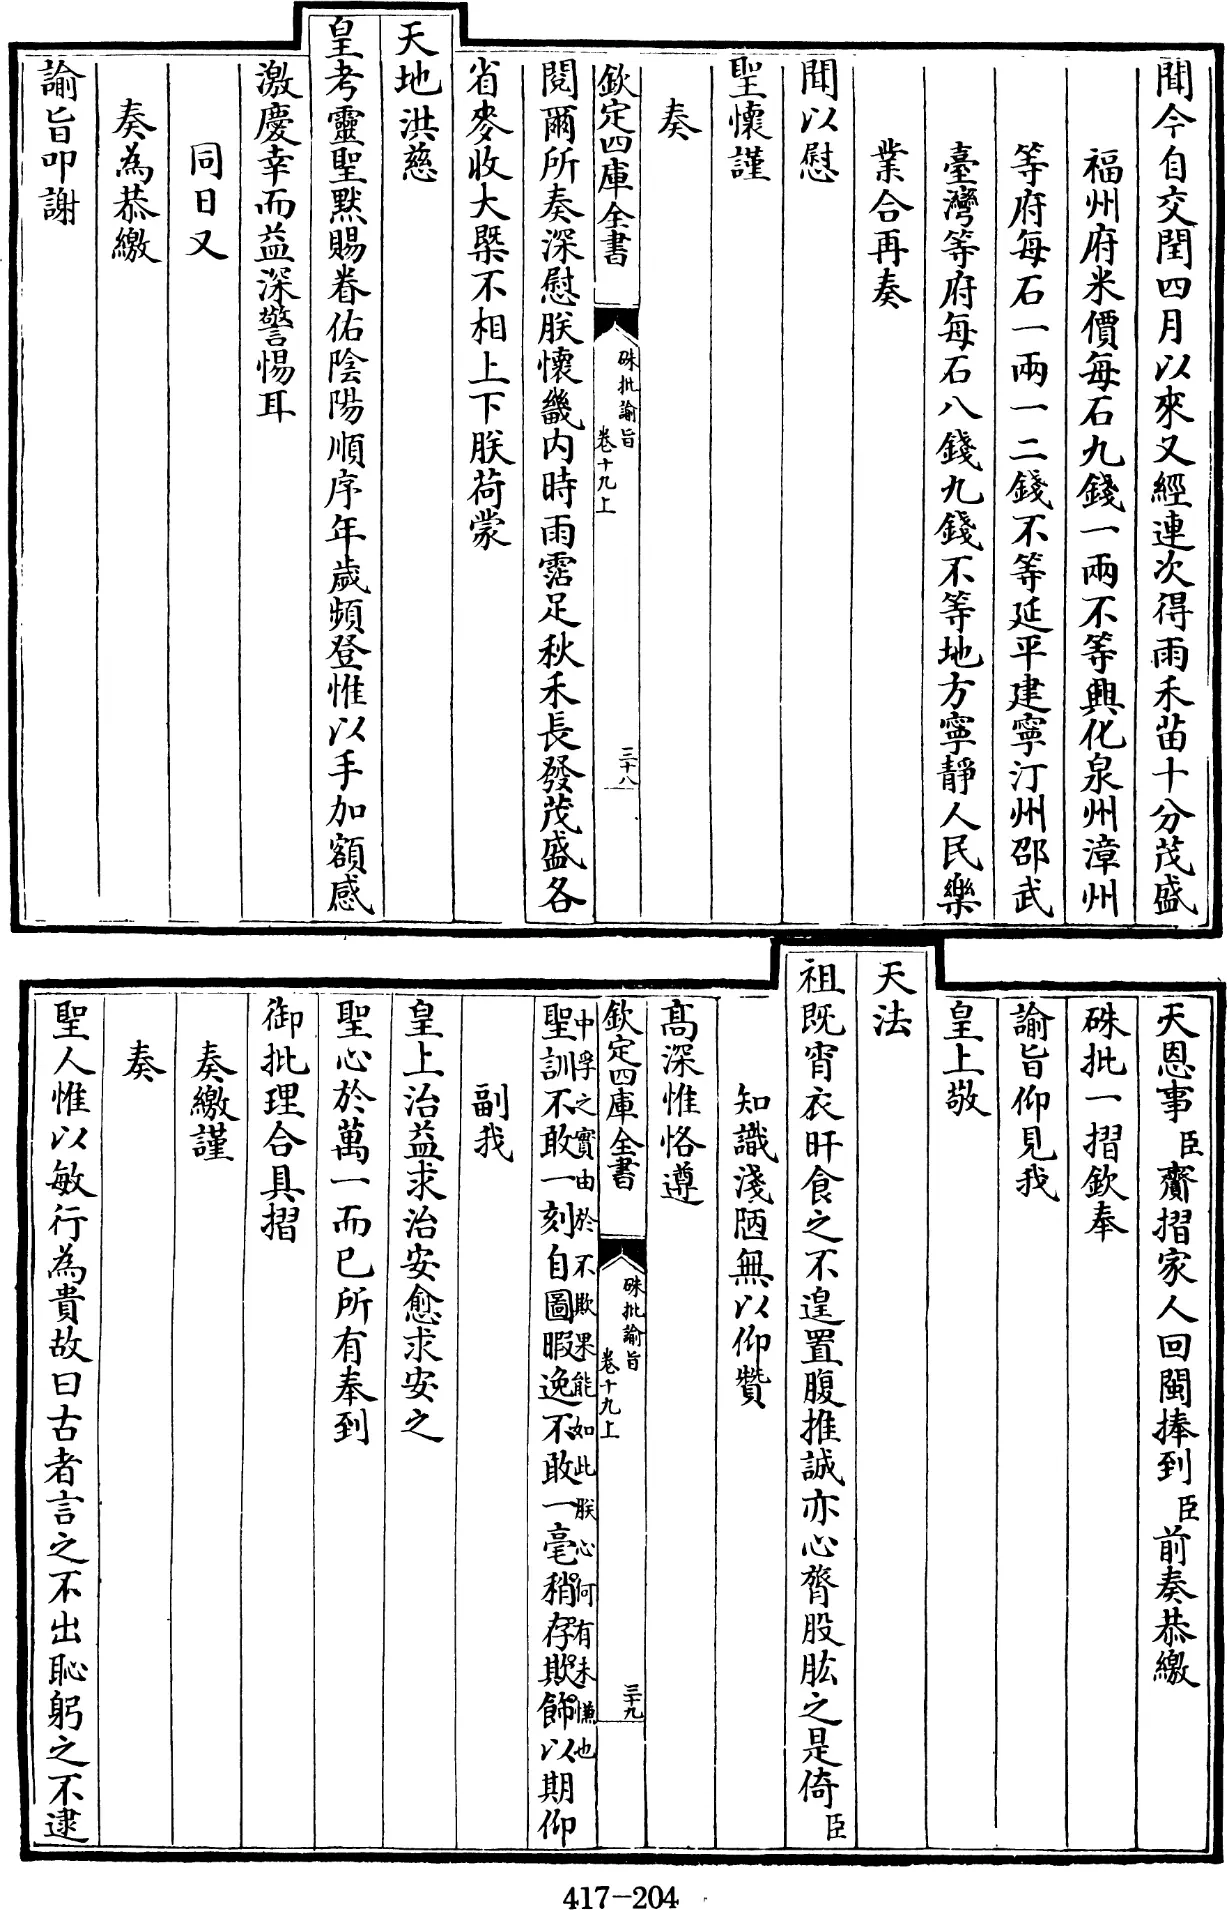 聞今自交閏四月以來又經連次得雨禾苗十分茂盛
福州府米價每石九錢一兩不等興化泉州漳州
等府每石一兩一二錢不等延平建寧汀州邵武
臺灣等府每石八錢九錢不等地方寧靜人民樂
業合再奏
聞以慰
聖懷謹
奏
欽定四庫全書
硃批諭旨
卷十九上
三十八
閱爾所奏深慰朕懷畿内時雨霑足秋禾長發茂盛各
省麥收大槩不相上下朕荷蒙
天地洪慈
皇考靈聖默賜眷佑陰陽順序年歲頻登惟以手加額感
激慶幸而益深警惕耳
同日又
奏為恭繳
諭旨叩謝
天恩事臣齎摺家人回閩捧到臣前奏恭繳
硃批一摺欽奉
諭旨仰見我
皇上敬
天法
祖既宵衣旰食之不遑置腹推誠亦心膂股肱之是倚臣
知識淺陋無以仰贊
髙深惟恪遵
欽定四庫全書
硃批諭旨
卷十九上
三十九
中孚之實由於不欺果能如此朕心何有未慊也
聖訓不敢一刻自圖暇逸不敢一毫稍存欺飾以期仰
副我
皇上治益求治安愈求安之
聖心於萬一而已所有奉到
御批理合具摺
奏繳謹
奏
聖人惟以敏行為貴故曰古者言之不出恥躬之不逮
417-204